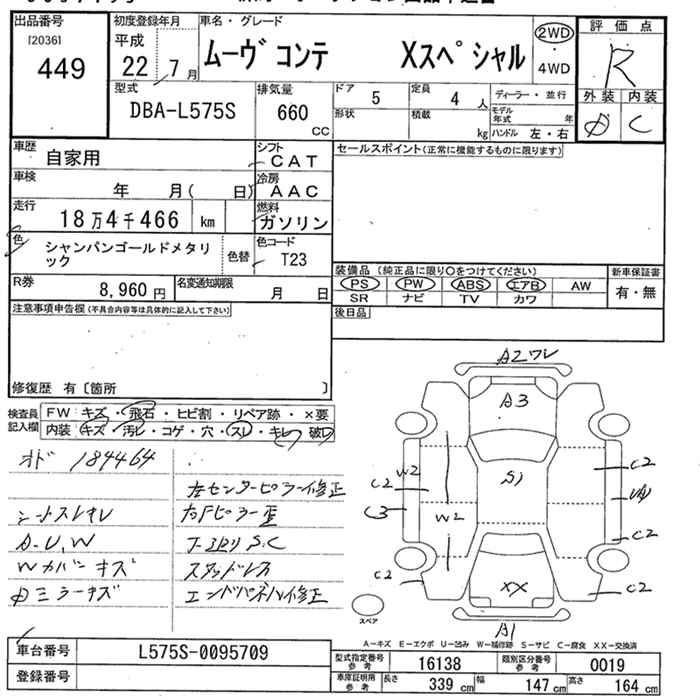 出品番号
[2036]
449
初度登録年月
平成
22年 7月
車名・グレード
ムーヴ コンテ Xスペシャル
2WD
・
4WD
評価点
R
外装 内装
C
型式
DBA-L575S
排気量
660
CC
ドア
5
定員
4 人
形状
積載
kg
ディーラー・並行
モデル年式 年
ハンドル 左・右
車歴
自家用
シフト
CAT
車検
年 月( 日)
冷房
AAC
走行
18万4千466 km
燃料
ガソリン
色
シャンパンゴールドメタリ
ック
色替
色コード
T23
R券
8,960 円
名変通知期限
月 日
セールスポイント(正常に機能するものに限ります)
装備品 (純正品に限り○をつけてください)
新車保証書
PS PW ABS エアB AW
有・無
SR ナビ TV カワ
後日品
注意事項申告欄(不具合内容等は具体的に記入して下さい)
修復歴 有〔箇所 〕
検査員
記入欄
FW キズ・飛石・ヒビ割・リペア跡・×要
内装 キズ・汚レ・コゲ・穴・スレ・キレ・破レ
オド 184464
左センターピラー修正
シートスレヨレ
右Fピラー歪
A-U,W
S.C
Wカバーキズ
スタッドレス
ミラーキズ
エンドパネル修正
A2ワレ
A3
S1
W2
C2
C3
W2
C2
C2
C2
C2
XX
A1
スペア
A-キズ E-エクボ U-凹み W-補修跡 S-サビ C-腐食 XX-交換済
車台番号
L575S-0095709
登録番号
型式指定番号
参考
16138
類別区分番号
参考
0019
車庫証明用
参考
長さ
339 cm
幅
147 cm
高さ
164 cm